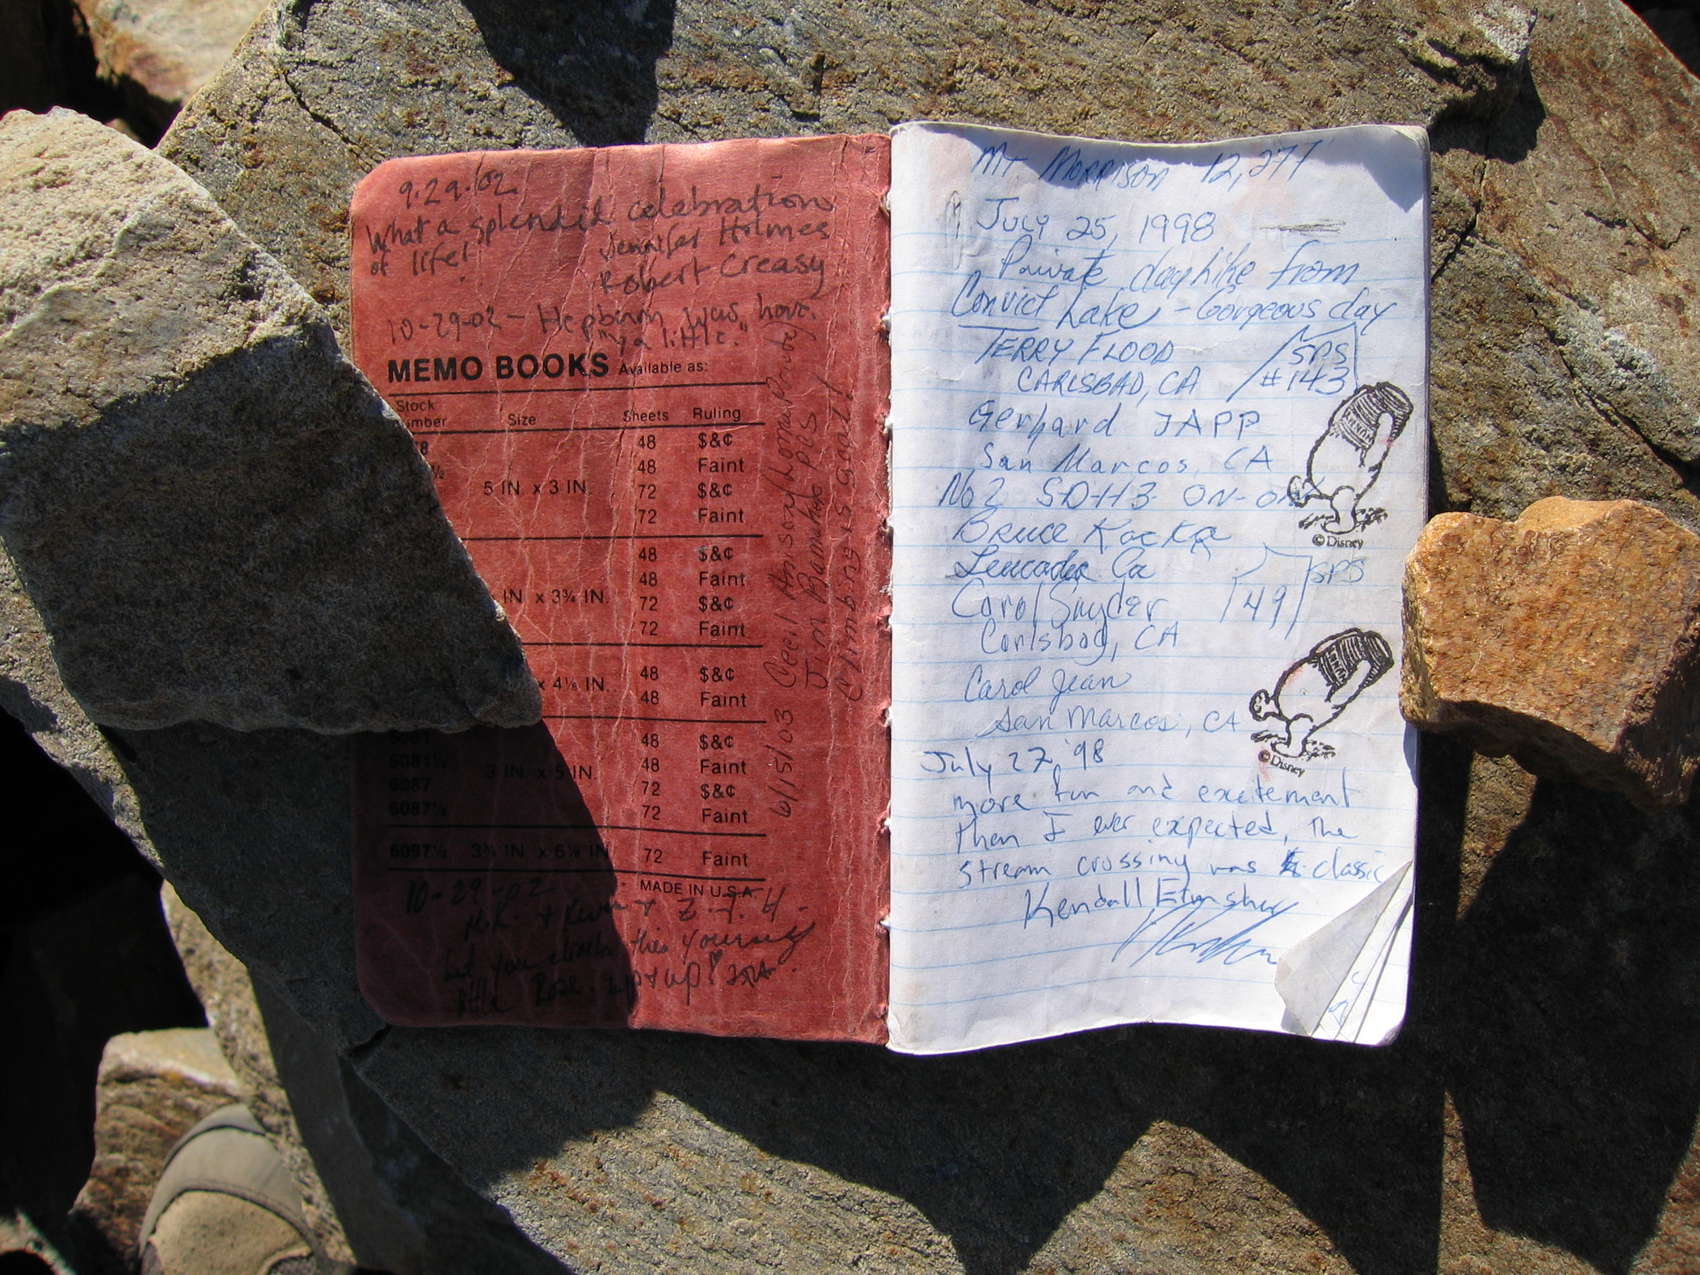 9.29.02
What a splendid celebration
of life!
Jennifer Holmes
Robert Creasy
10-29-02 - Hepburn was here.
"ya little."
MEMO BOOKS Available as:
Stock
Size Sheets Ruling
48 $&¢
48 Faint
5 IN. x 3 IN. 72 $&¢
72 Faint
48 $&¢
48 Faint
IN. x 3¾ IN. 72 $&¢
72 Faint
48 $&¢
x 4⅛ IN. 48 Faint
48 $&¢
3 IN. x 5 IN. 48 Faint
6087 72 $&¢
6087½ 72 Faint
6097½ IN. x IN. 72 Faint
MADE IN U.S.A.
10-29-02
+ Kevin + Z. T. H.
but you this yourself
little Rose. up!
6/15/03 Cecil
Jim
Climbing is good!
Mt. Morrison 12,277'
July 25, 1998
Private dayhike from
Convict Lake - Gorgeous day
TERRY FLOOD
CARLSBAD, CA
SPS
#143
Gerhard JAPP
San Marcos, CA
No 2
Bruce
Leucadia Ca
Carol Snyder
Carlsbad, CA
149
SPS
Carol Jean
San Marcos, CA
© Disney
© Disney
July 27, '98
more fun and excitement
than I ever expected, the
stream crossing was classic
Kendall